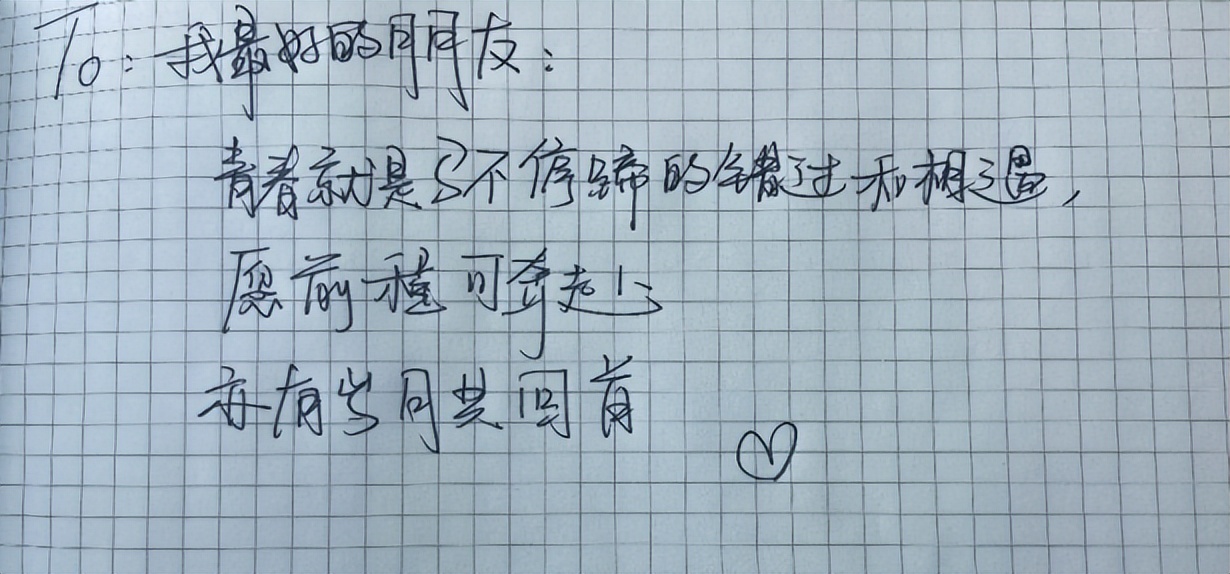 To：我最好的朋友：
青春就是马不停蹄的错过和相遇，
愿前程可奔赴
亦有岁月共回首